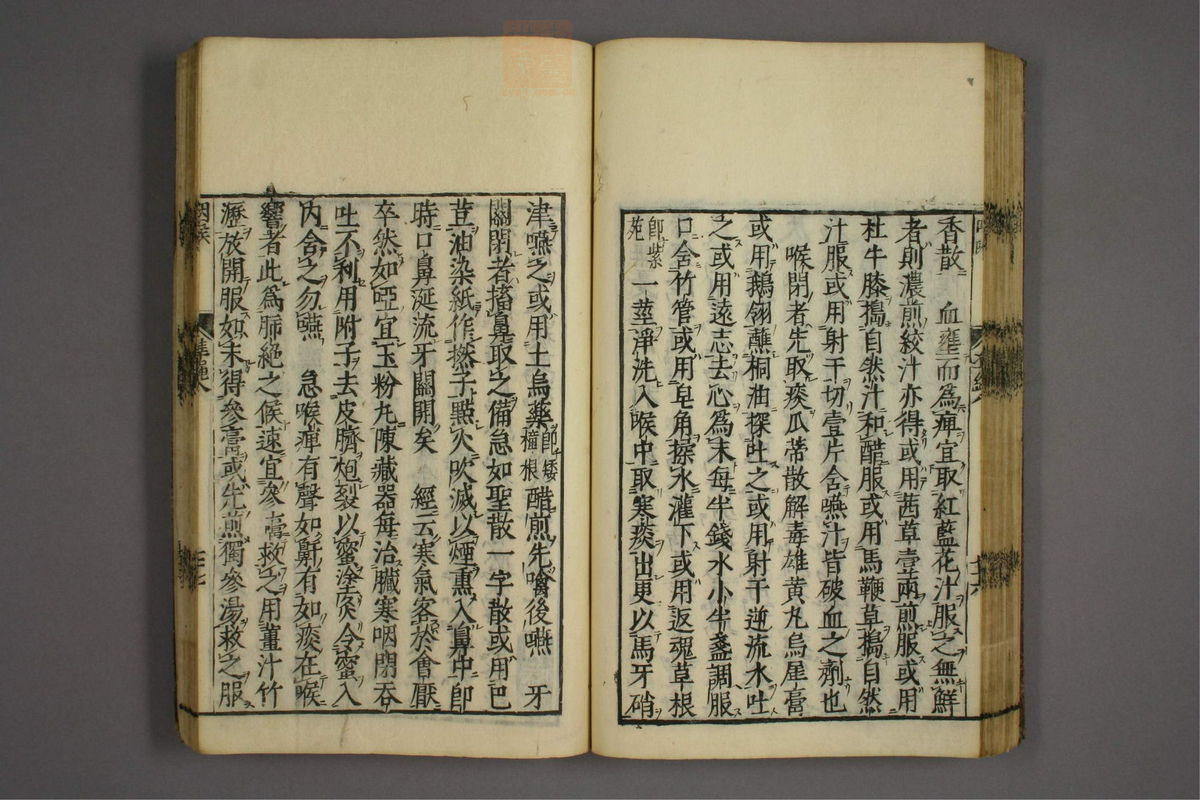 香散　血壅而爲痺宜取紅藍花汁服之無鮮
者則濃煎絞汁亦得或用茜草壹兩煎服或用
杜牛膝搗自然汁和醋服或用馬鞭草搗自然
汁服或用射干切壹片含嚥汁皆破血之劑也
喉閉者先取痰瓜蒂散解毒雄黃丸烏犀膏
或用鵝翎蘸桐油探吐之或用射干逆流水吐
之或用遠志去心爲末每半錢水小半盞調服
口含竹管或用皂角揉水灌下或用返魂草根
卽紫菀一莖淨洗入喉中取寒痰出更以馬牙硝
津嚥之或用土烏藥卽矮樟根醋煎先噙後嚥　牙
關閉者搐鼻取之備急如聖散一字散或用巴
荳油染紙作撚子點火吹滅以煙熏入鼻中卽
時口鼻涎流牙關開矣　經云寒氣客於會厭
卒然如啞宜玉粉丸陳藏器每治臟寒咽閉吞
吐不利用附子去皮臍炮裂以蜜塗炙令蜜入
內含之勿嚥　急喉痺有聲如鼾有如痰在喉
響者此爲肺絕之候速宜參膏救之用薑汁竹
瀝放開服如未得參膏或先煎獨參湯救之服
咽喉
準繩